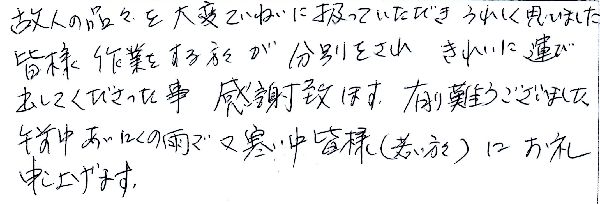 故人の品々を大変ていねいに扱っていただきうれしく思いました
皆様、作業をする方が分別をされ きれいに運び
出してくださった事 感謝致します。有り難うございました
午前中あいにくの雨で又寒い中皆様（若い方）にお礼
申し上げます。